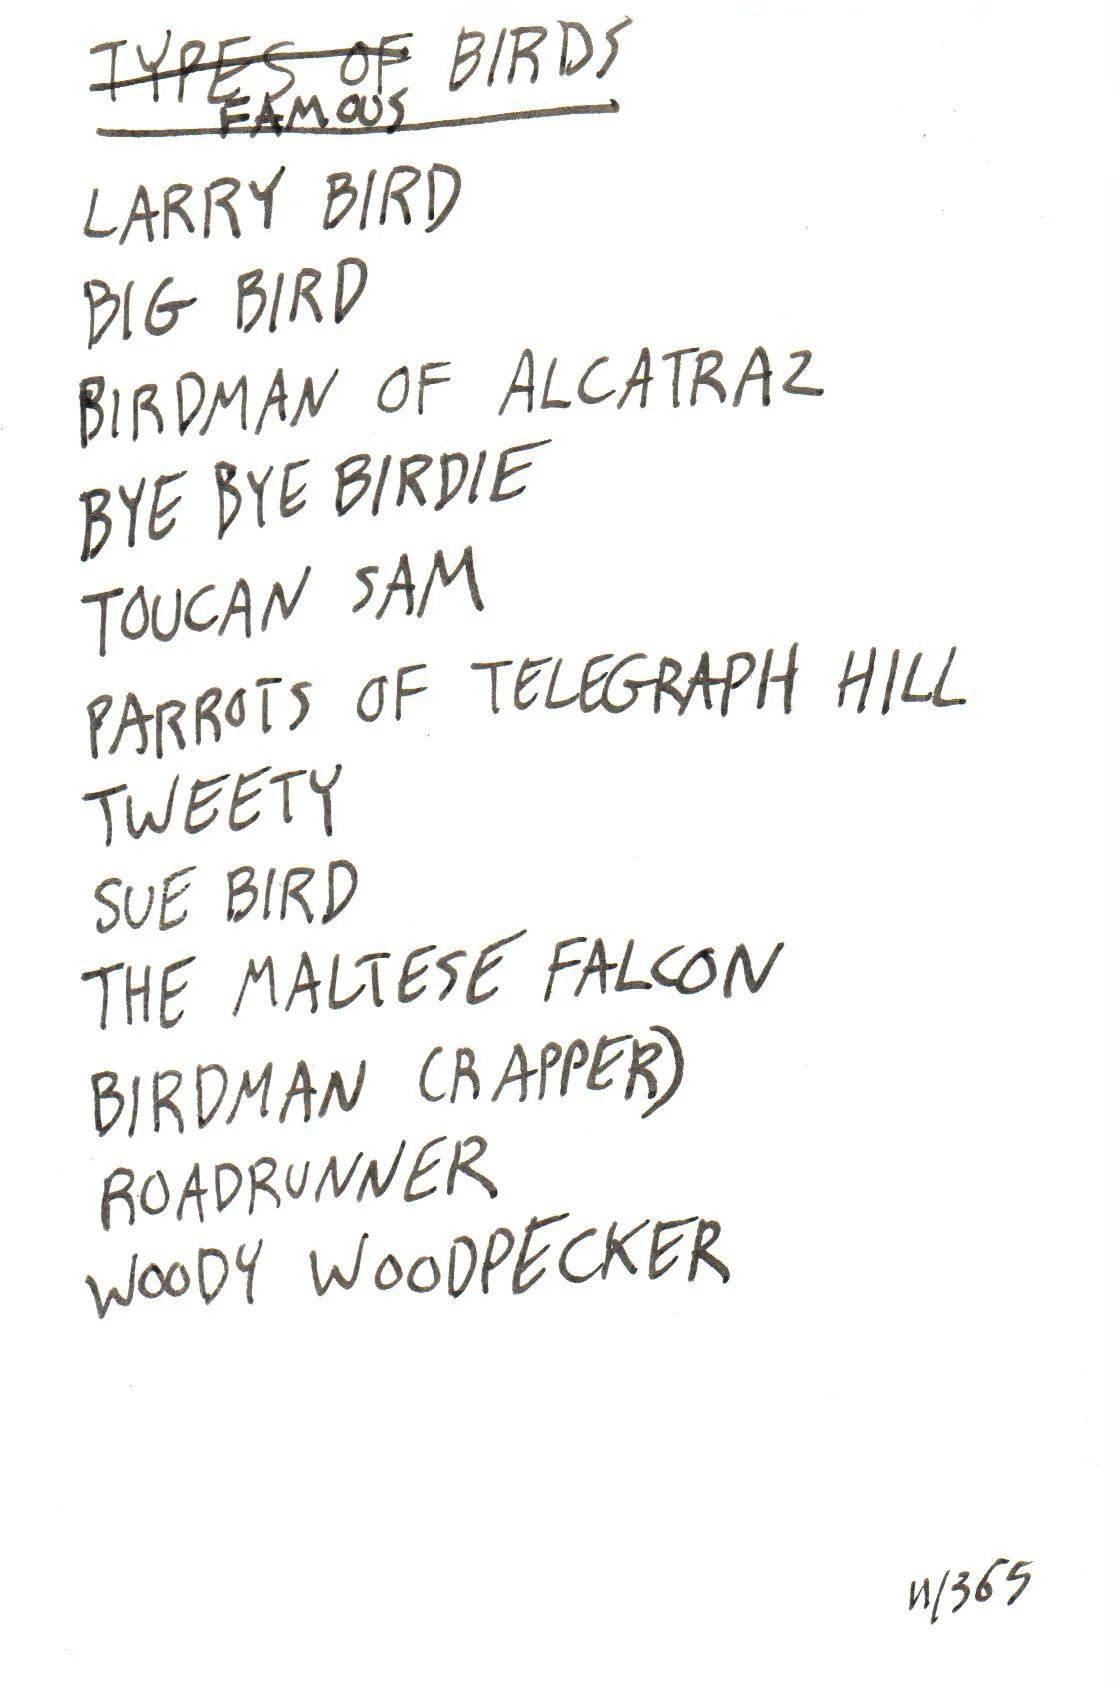 TYPES OF BIRDS
FAMOUS
LARRY BIRD
BIG BIRD
BIRDMAN OF ALCATRAZ
BYE BYE BIRDIE
TOUCAN SAM
PARROTS OF TELEGRAPH HILL
TWEETY
SUE BIRD
THE MALTESE FALCON
BIRDMAN (RAPPER)
ROADRUNNER
WOODY WOODPECKER
11/365